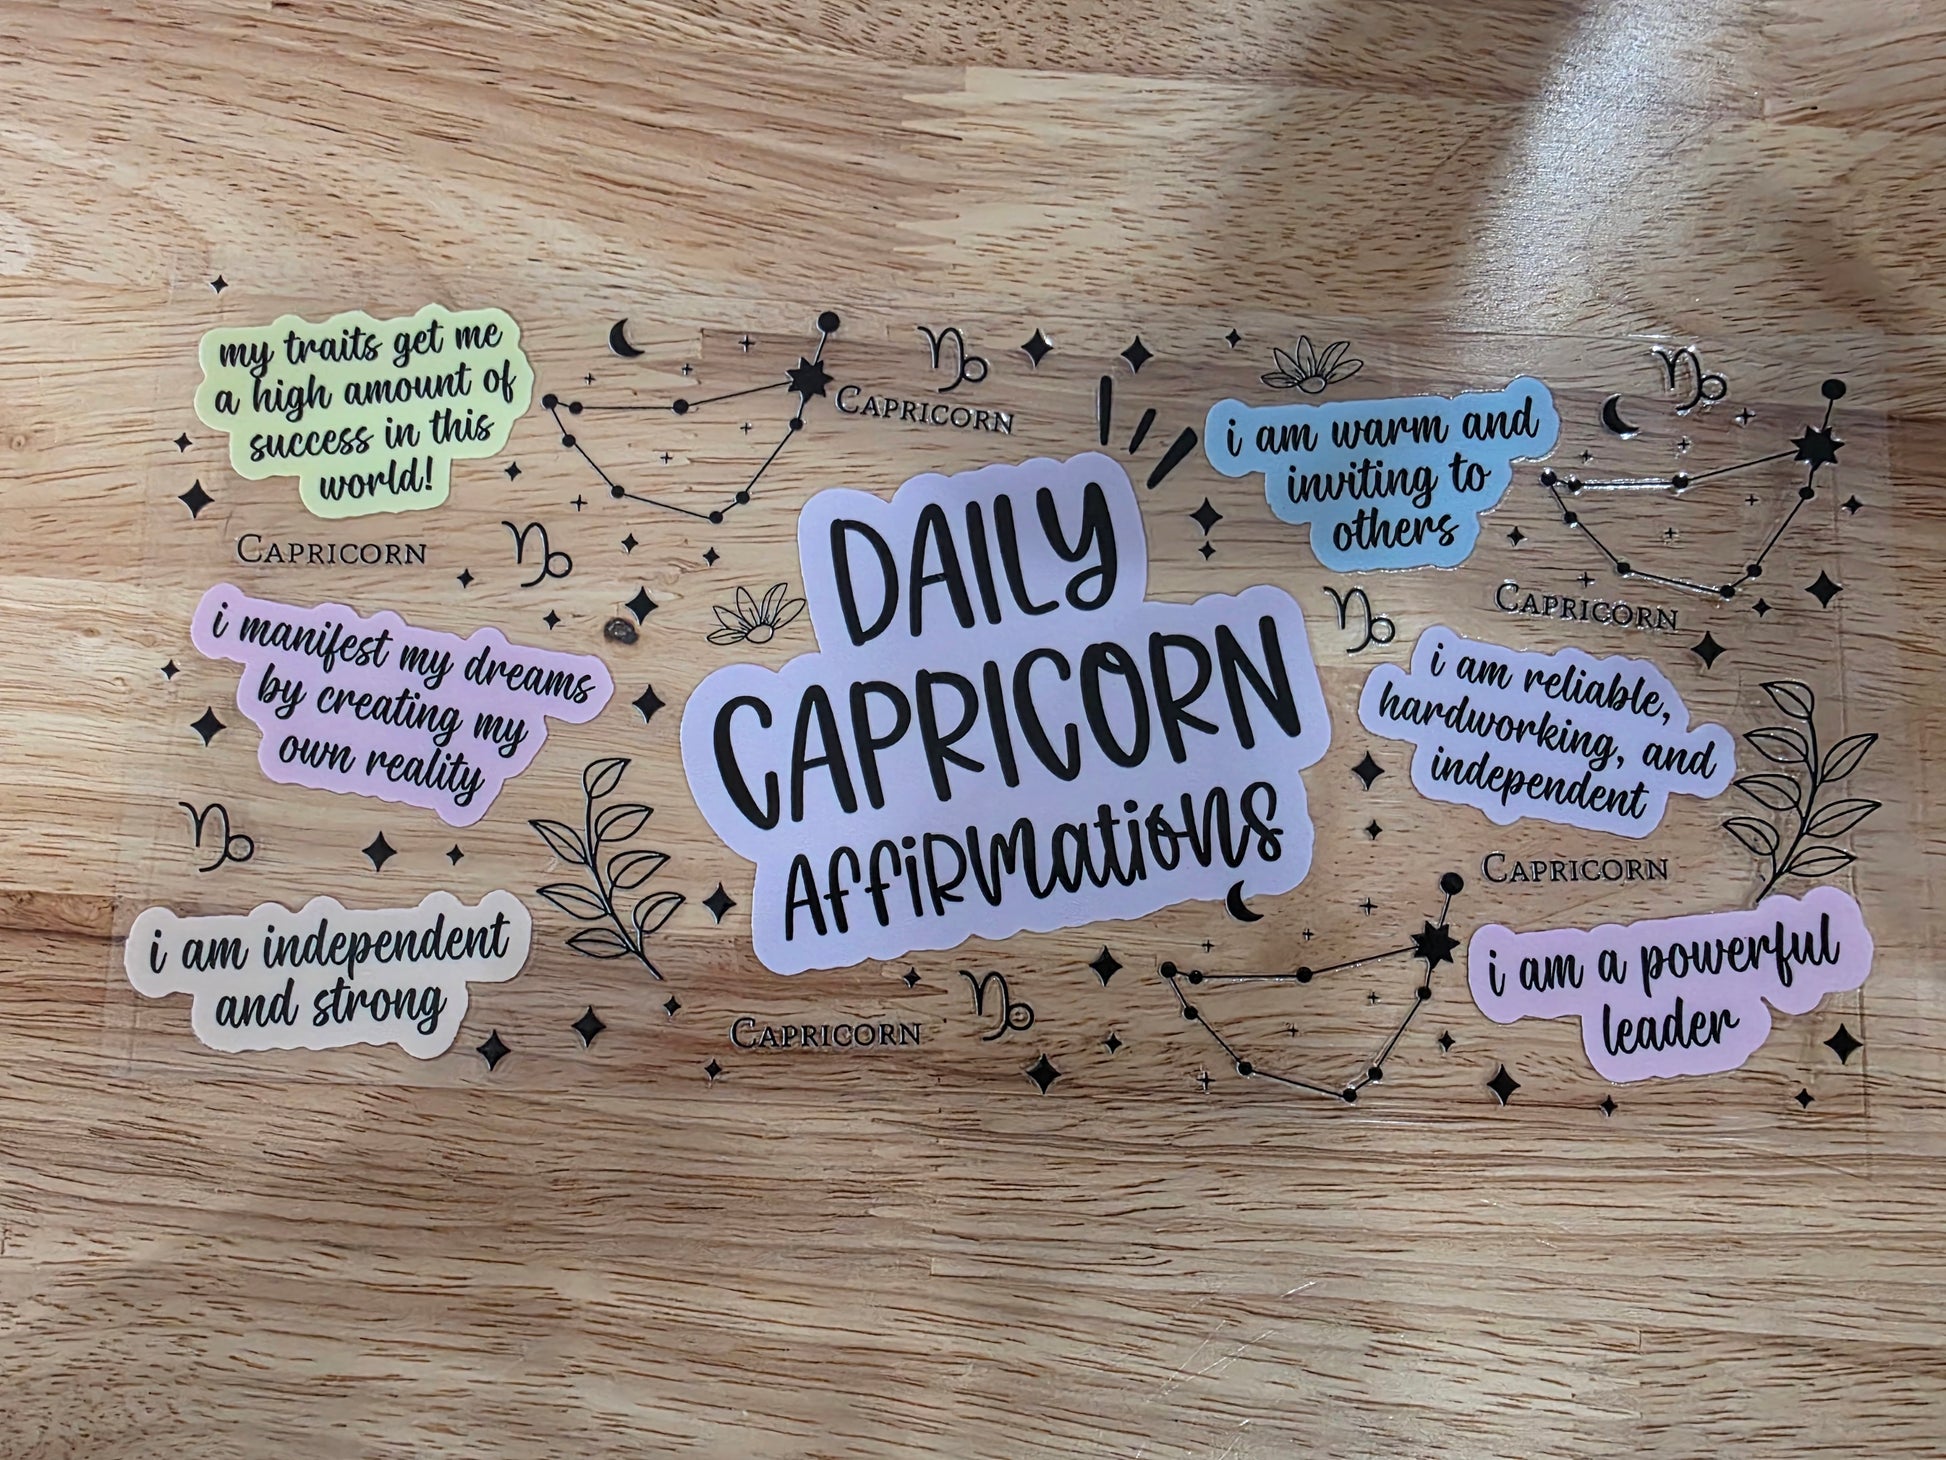 my traits get me
a high amount of
success in this
world!
CAPRICORN
CAPRICORN
i manifest my dreams
by creating my
own reality
i am independent
and strong
DAILY
CAPRICORN
AFFIRMATIONS
CAPRICORN
i am warm and
inviting to
others
CAPRICORN
i am reliable,
hardworking, and
independent
CAPRICORN
i am a powerful
leader